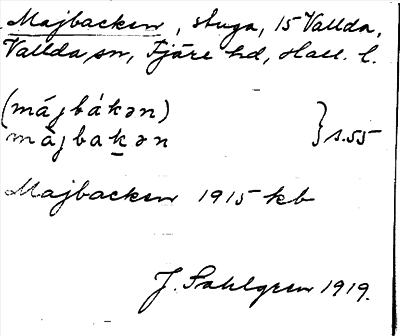 Majbacken, stuga, 15 Vallda,
Vallda sn, Fjäre hd, Hall. l.
(má̀jbákən)
mà̀jbak̲ən } s.55
Majbacken 1915 kb
J. Sahlgren 1919.